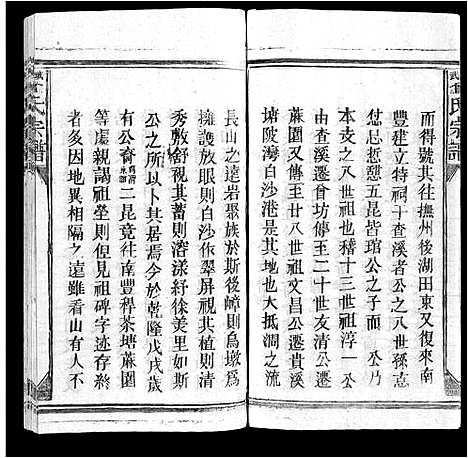 而得號其往撫州後湖田東又復來南
豐建立特祠于查溪者公之八世孫志
忿志悊懿五昆皆琯公之子 公乃
由八世祖也稽十三世祖淳一公
由查溪遷曾坊傳至二十世友清公遷
蔴園又傳至廿八世祖西昌公遷黃溪
堵陂灣白沙港是其地也大抵澗之流
長山之遠岩聚族於斯後嶂則烏墩爲
擁護放眼則白沙作翠屏視其植則清
秀敷舒視其蓄則溶漾紆徐美里如斯
公之所以卜其居焉今於乾隆戊戌歲
有公裔 二昆竟往南豐稈茶塘蔴園
等處親謁祖塋則但見祖碑字迹存猶
者多因地異相隔之遠難看山有人不
氏宗譜
氏宗譜